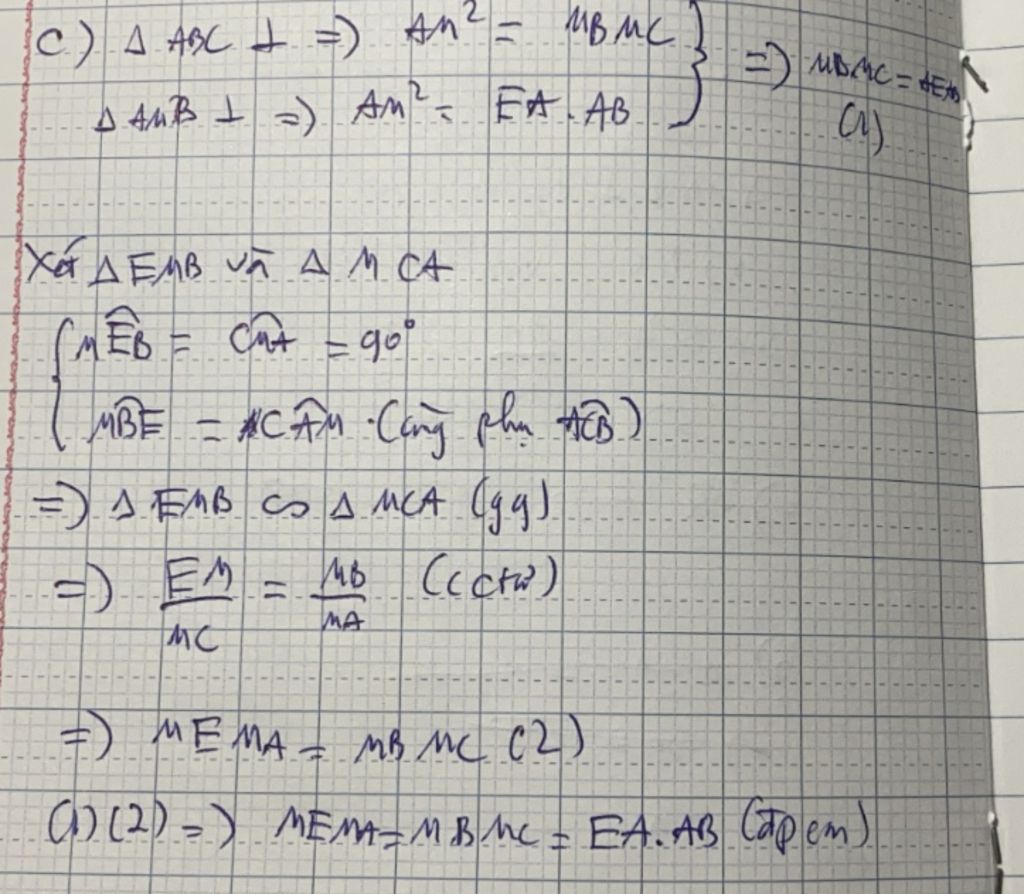 c) Δ ABC ⊥ => AM² = MB MC
Δ AMB ⊥ => AM² = EA . AB
=> MB MC = AE AB
(1)
Xét Δ EMB và Δ MCA
MÊB = CM̂A = 90°
MB̂E = CÂM (cùng phụ AĈB)
=> Δ EMB ∽ Δ MCA (gg)
=> EM/MC = MB/MA (cctứ)
=> ME MA = MB MC (2)
(1)(2) => ME MA = MB MC = EA . AB (đpcm)